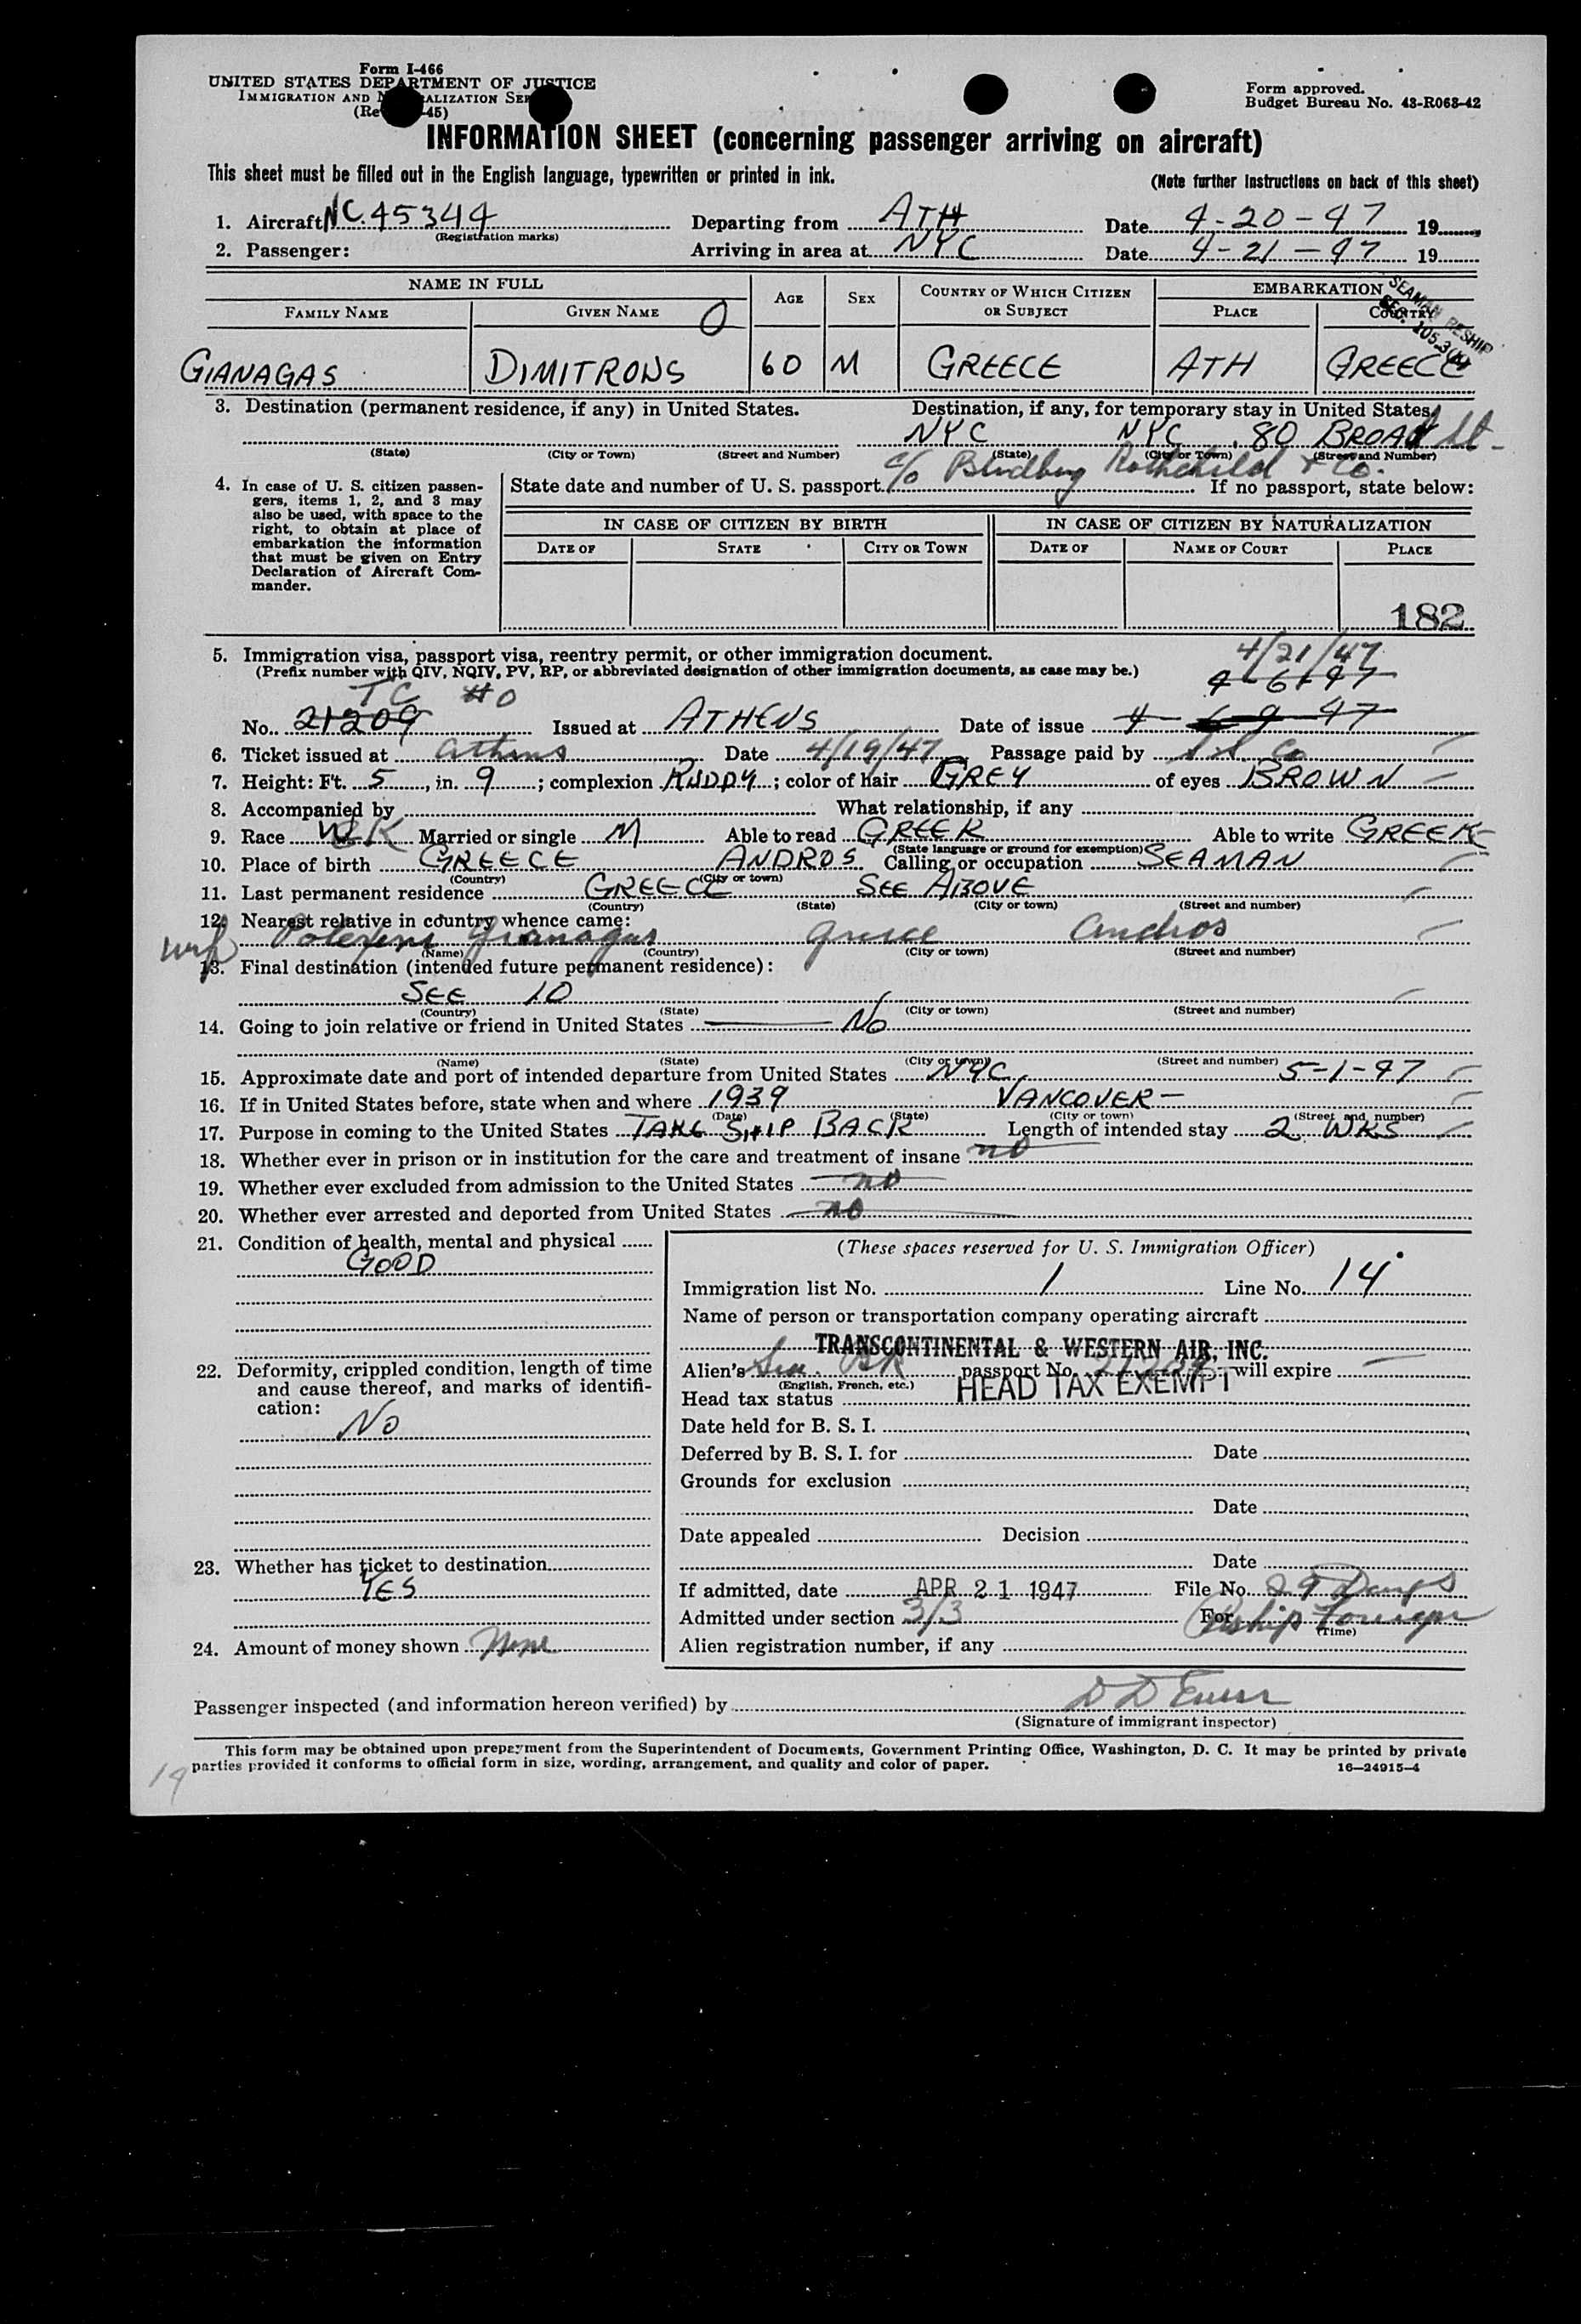 Form I-466
UNITED STATES DEPARTMENT OF JUSTICE
IMMIGRATION AND NATURALIZATION SER
(Re -45)
Form approved.
Budget Bureau No. 43-R068-42
INFORMATION SHEET (concerning passenger arriving on aircraft)
This sheet must be filled out in the English language, typewritten or printed in ink.
(Note further instructions on back of this sheet)
1. Aircraft NC.45344 Departing from ATH Date 4-20-47 19
(Registration marks)
2. Passenger: Arriving in area at NYC Date 4-21-47 19
NAME IN FULL AGE SEX COUNTRY OF WHICH CITIZEN OR SUBJECT EMBARKATION
FAMILY NAME GIVEN NAME O PLACE COUNTRY
SEAMAN RESHIP
SEC. 105.3(b)
GIANAGAS DIMITROWS 60 M GREECE ATH GREECE
3. Destination (permanent residence, if any) in United States. Destination, if any, for temporary stay in United States.
NYC NYC, 80 BROAD St-
(State) (City or Town) (Street and Number) (State) (City or Town) (Street and Number)
c/o Rothchild & Co.
4. In case of U. S. citizen passengers, items 1, 2, and 3 may also be used, with space to the right, to obtain at place of embarkation the information that must be given on Entry Declaration of Aircraft Commander.
State date and number of U. S. passport If no passport, state below:
IN CASE OF CITIZEN BY BIRTH IN CASE OF CITIZEN BY NATURALIZATION
DATE OF STATE CITY OR TOWN DATE OF NAME OF COURT PLACE
182
5. Immigration visa, passport visa, reentry permit, or other immigration document.
(Prefix number with QIV, NQIV, PV, RP, or abbreviated designation of other immigration documents, as case may be.)
4/21/47
4-6-47
TC #0
No. 21209 Issued at ATHENS Date of issue 4- 9-47
6. Ticket issued at Athens Date 4/19/47 Passage paid by S.S. Co
7. Height: Ft. 5, in. 9; complexion RUDDY; color of hair GREY of eyes BROWN
8. Accompanied by What relationship, if any
9. Race GK Married or single M Able to read GREEK Able to write GREEK
(State language or ground for exemption)
10. Place of birth GREECE ANDROS Calling or occupation SEAMAN
(Country) (City or town)
11. Last permanent residence GREECE SEE ABOVE
(Country) (State) (City or town) (Street and number)
12. Nearest relative in country whence came:
wife Gianagas Greece Andros
(Name) (Country) (City or town) (Street and number)
13. Final destination (intended future permanent residence):
SEE 10
(Country) (State) (City or town) (Street and number)
14. Going to join relative or friend in United States No
(Name) (State) (City or town) (Street and number)
15. Approximate date and port of intended departure from United States NYC, 5-1-47
16. If in United States before, state when and where 1939 VANCOVER-
(Date) (State) (City or town) (Street and number)
17. Purpose in coming to the United States TAKE SHIP BACK Length of intended stay 2 WKS
18. Whether ever in prison or in institution for the care and treatment of insane no
19. Whether ever excluded from admission to the United States no
20. Whether ever arrested and deported from United States no
21. Condition of health, mental and physical
GOOD
22. Deformity, crippled condition, length of time and cause thereof, and marks of identification:
No
23. Whether has ticket to destination
YES
24. Amount of money shown None
(These spaces reserved for U. S. Immigration Officer)
Immigration list No. 1 Line No. 14
Name of person or transportation company operating aircraft
TRANSCONTINENTAL & WESTERN AIR, INC.
Alien's passport No. 21209 will expire
(English, French, etc.)
Head tax status HEAD TAX EXEMPT
Date held for B. S. I.
Deferred by B. S. I. for Date
Grounds for exclusion
Date
Date appealed Decision
Date
If admitted, date APR 21 1947 File No. 29 Days
Admitted under section 3/3 For Reship Foreign
(Time)
Alien registration number, if any
Passenger inspected (and information hereon verified) by
(Signature of immigrant inspector)
This form may be obtained upon prepayment from the Superintendent of Documents, Government Printing Office, Washington, D. C. It may be printed by private
parties provided it conforms to official form in size, wording, arrangement, and quality and color of paper.
16—24915-4
19